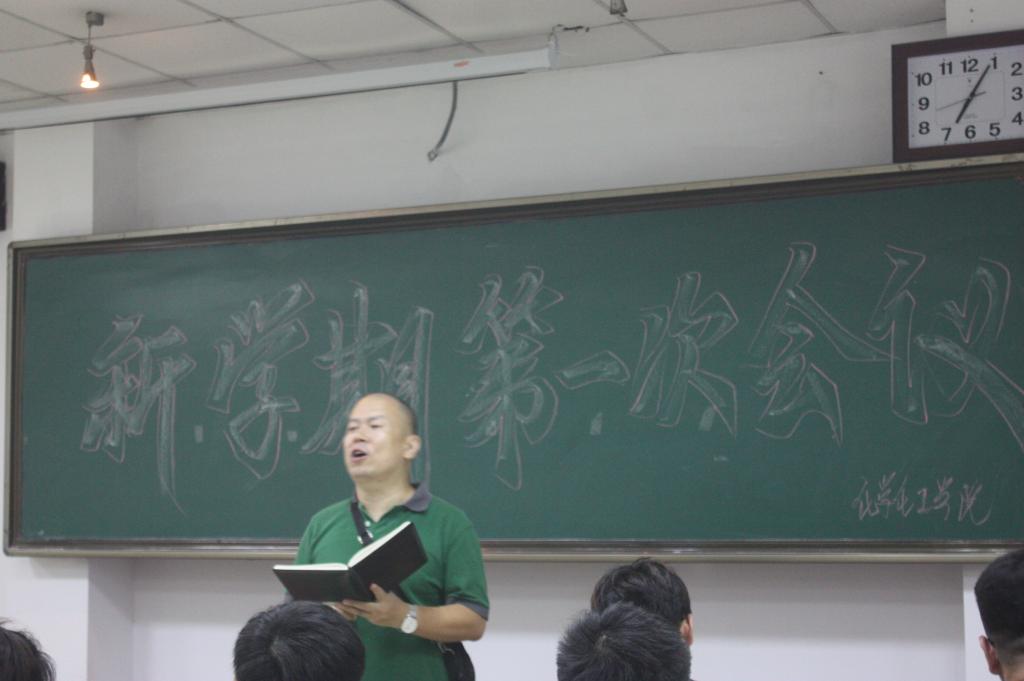 新学期第一次会议
化学化工学院
10 11 12 1 2
9 3
8 7 6 5 4